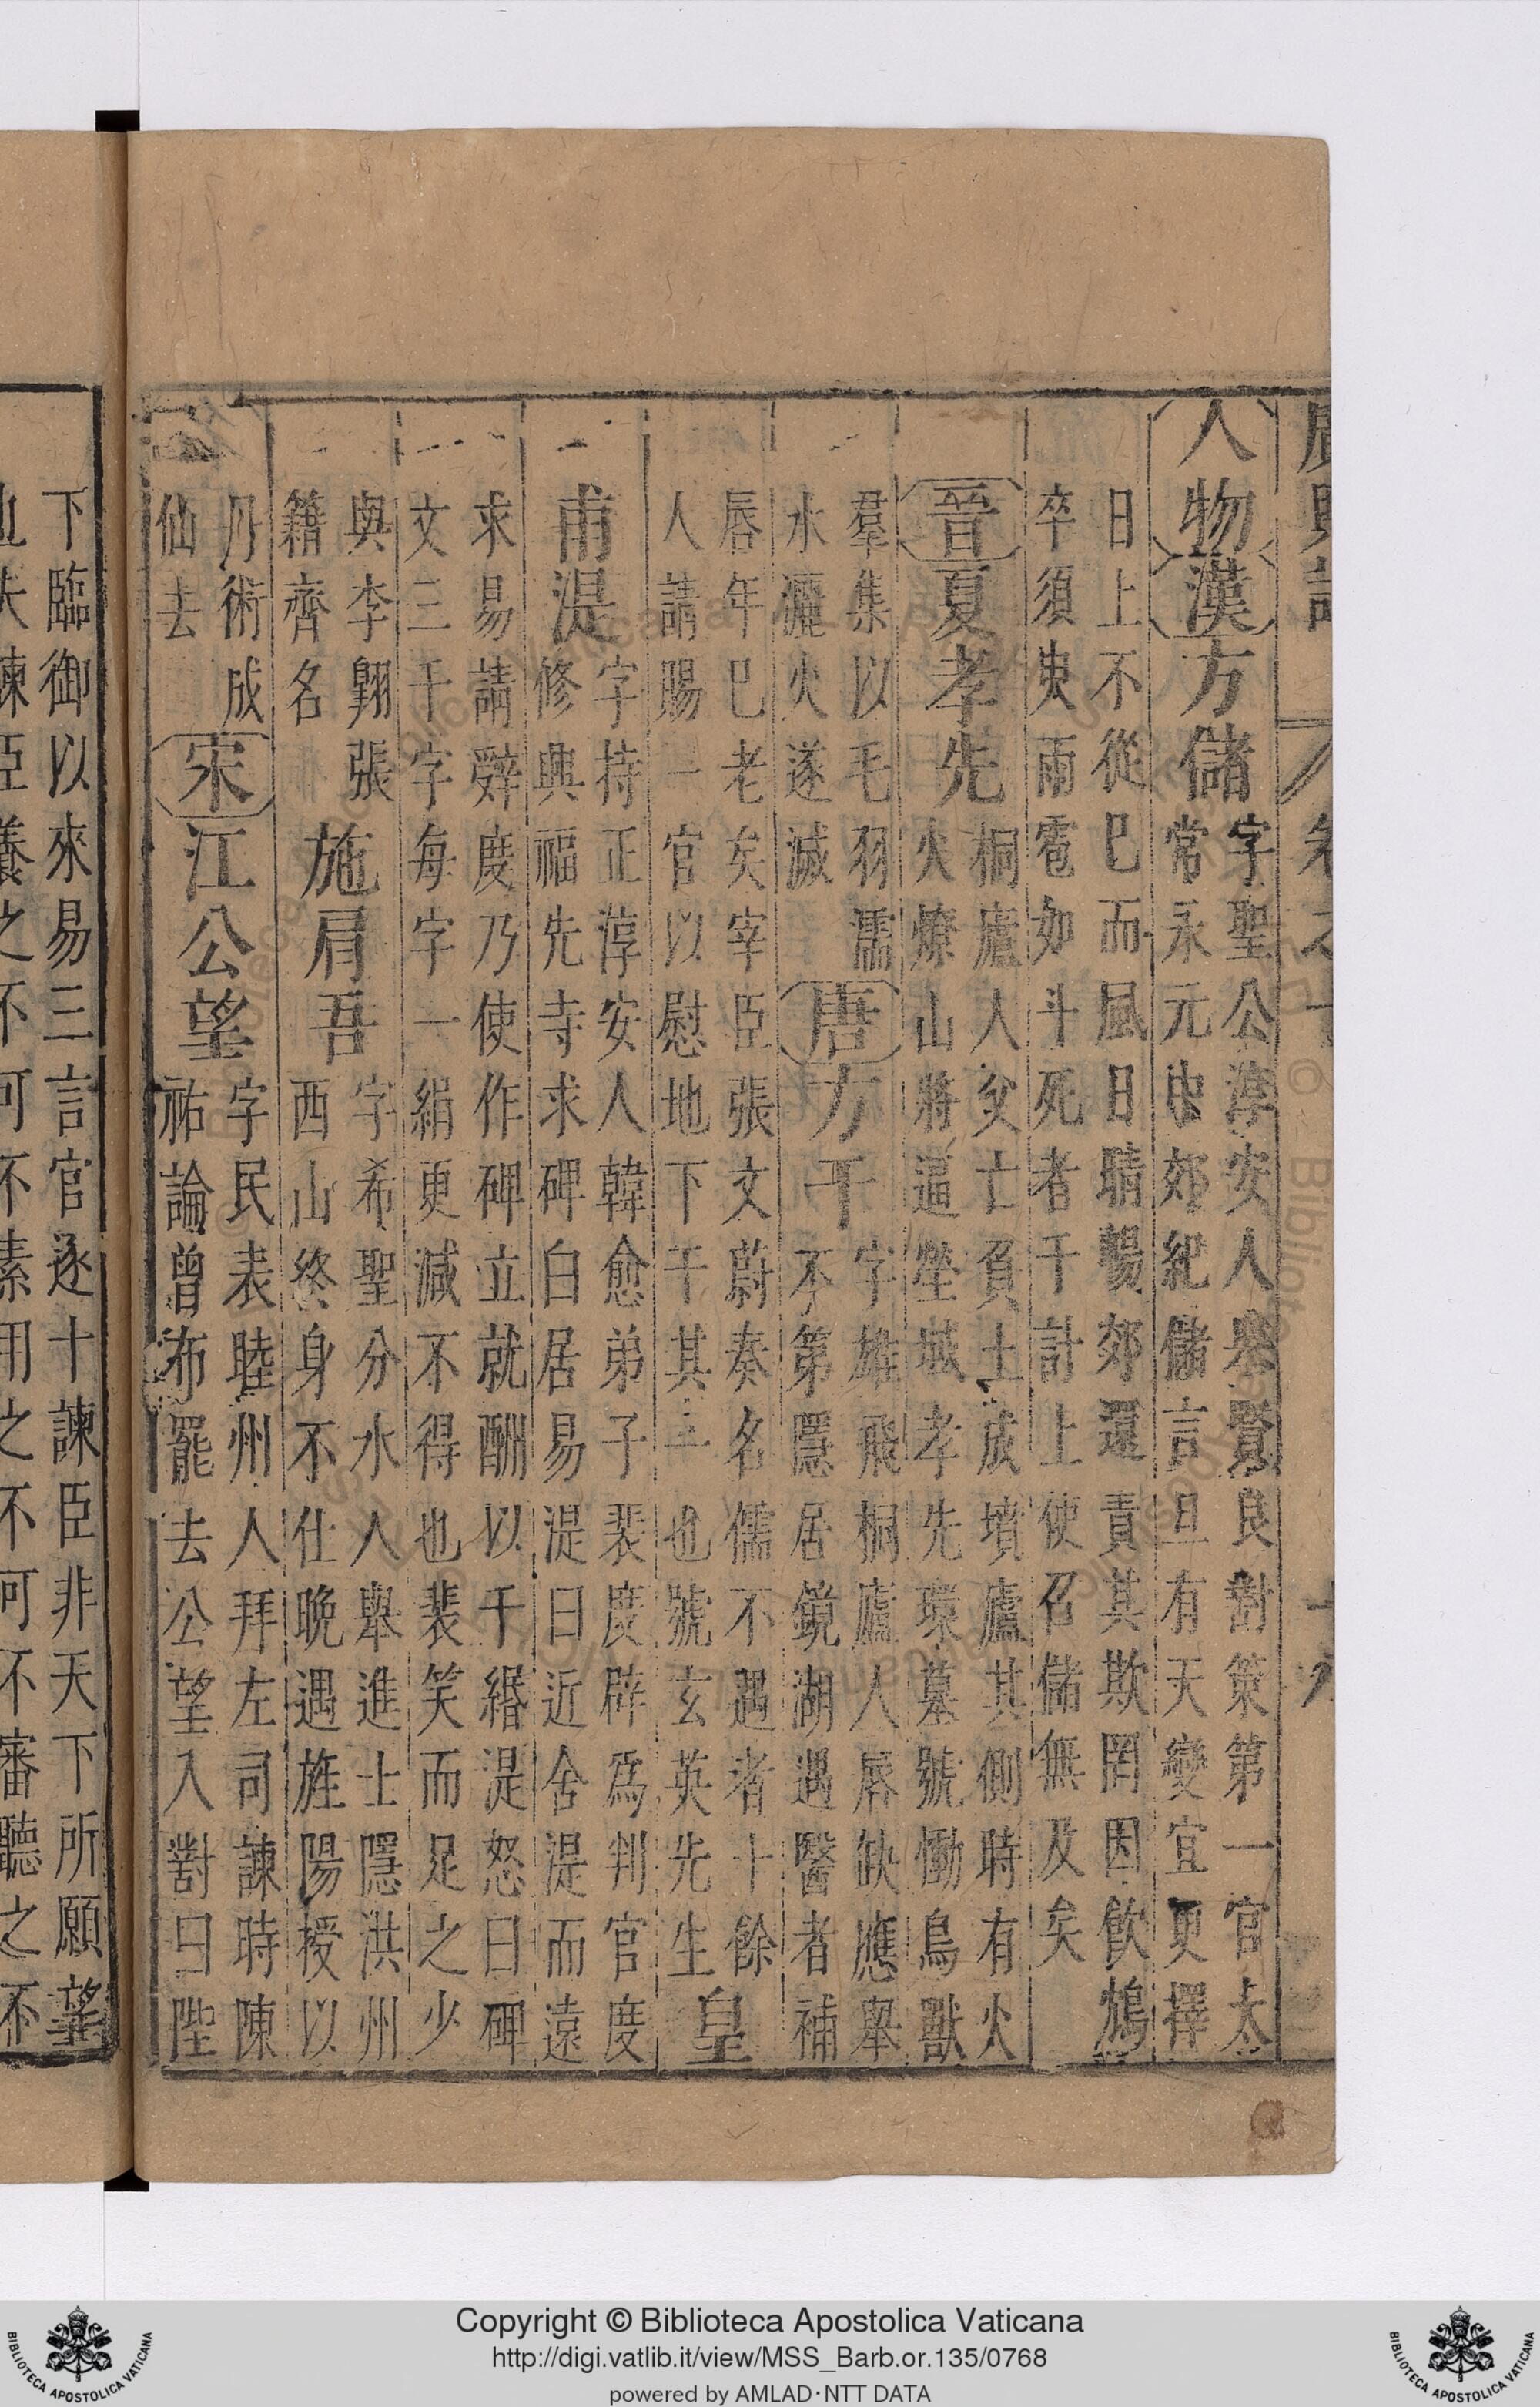 廣輿記
卷之十
人物漢方儲
字聖公淳安人舉賢良對策第一官太
常永元中郊紀儲言旦有天變宜更擇
日上不從已而風日晴暢郊還責其欺罔因飲鴆
卒須臾雨雹如斗死者千計上使召儲無及矣
晉夏孝先
桐廬人父亡負土成墳廬其側時有火
火燎山將逼塋域孝先環墓號慟鳥獸
羣集以毛羽濡
水灑火遂滅
唐方干
字雄飛桐廬人唇缺應舉
不第隱居鏡湖遇醫者補
唇年已老矣宰臣張文蔚奏名儒不遇者十餘
人請賜一官以慰地下干其一也號玄英先生
皇
甫湜
字持正淳安人韓愈弟子裴度辟爲判官度
修興福先寺求碑白居易湜曰近舍湜而遠
求易請辭度乃使作碑立就酬以千緡湜怒曰碑
文三千字每字一絹更減不得也裴笑而足之少
與李翺張
籍齊名
施肩吾
字希聖分水人舉進士隱洪州
西山終身不仕晚遇旌陽授以
丹術成
仙去
宋江公望
字民表睦州人拜左司諫時陳
祐論曾布罷去公望入對曰陛
下臨御以來易三言官逐十諫臣非天下所願望
也夫諫臣養之不可不素用之不可不審聽之不
Copyright © Biblioteca Apostolica Vaticana
http://digi.vatlib.it/view/MSS_Barb.or.135/0768
powered by AMLAD·NTT DATA
BIBLIOTECA APOSTOLICA VATICANA
BIBLIOTECA APOSTOLICA VATICANA